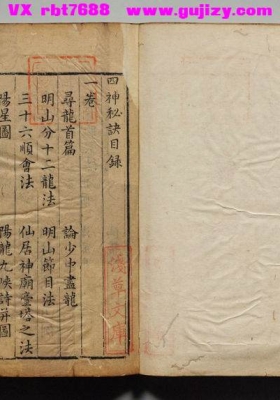 VX rbt7688 www.gujizy.com
四神秘訣目錄
一卷
尋龍首篇 論少中盡龍
明山分十二龍法 明山節目法
三十六順會法 仙居神廟臺塔之法
陽星圖 陽龍九